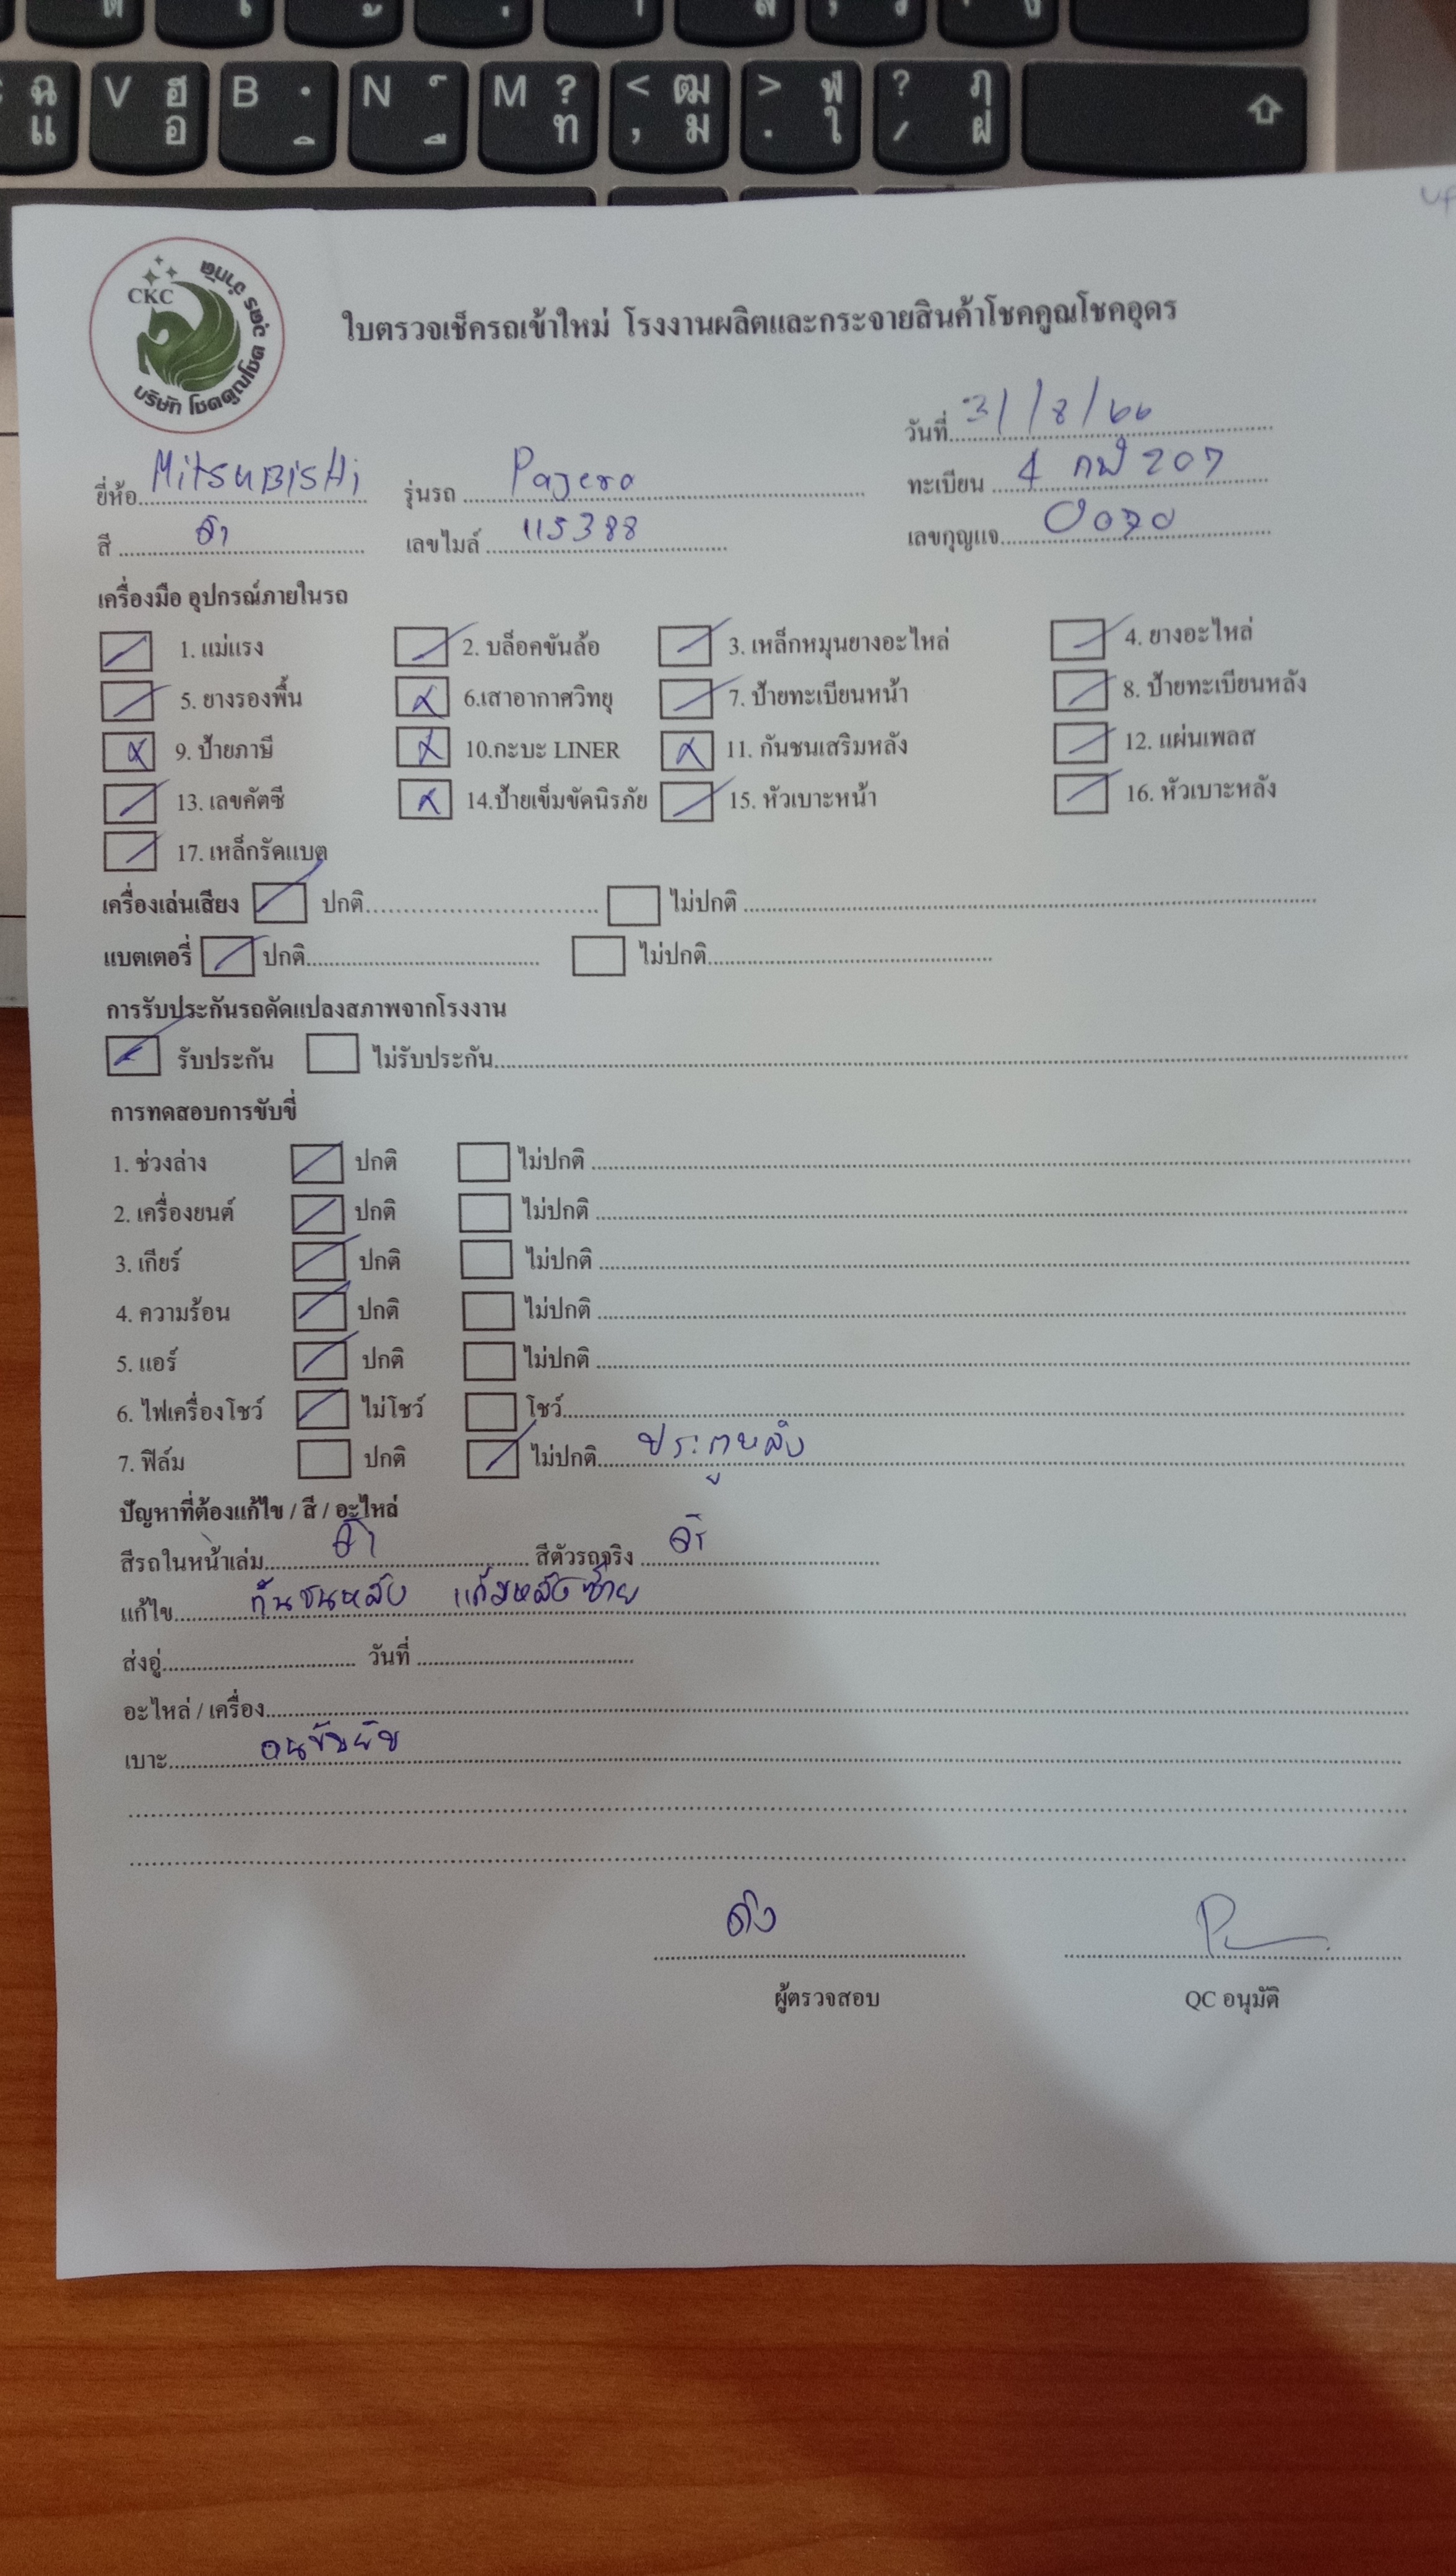 V ฮ อ B ฺ ิ N ์ ื M ? ท < ฒ , ม > ฬ . ใ ? ฦ / ฝ
ฉ แ
CKC
บริษัท โชคคูณโชค อุดร จำกัด
ใบตรวจเช็ครถเข้าใหม่ โรงงานผลิตและกระจายสินค้าโชคคูณโชคอุดร
วันที่ 31/8/66
ยี่ห้อ MitsuBisHi รุ่นรถ Pajero ทะเบียน 4 กฬ 207
สี ดำ เลขไมล์ 115388 เลขกุญแจ 0070
เครื่องมือ อุปกรณ์ภายในรถ
1. แม่แรง 2. บล็อคขันล้อ 3. เหล็กหมุนยางอะไหล่ 4. ยางอะไหล่
5. ยางรองพื้น 6.เสาอากาศวิทยุ 7. ป้ายทะเบียนหน้า 8. ป้ายทะเบียนหลัง
9. ป้ายภาษี 10.กะบะ LINER 11. กันชนเสริมหลัง 12. แผ่นเพลส
13. เลขคัตซี 14.ป้ายเข็มขัดนิรภัย 15. หัวเบาะหน้า 16. หัวเบาะหลัง
17. เหล็กรัดแบต
เครื่องเล่นเสียง ปกติ ไม่ปกติ
แบตเตอรี่ ปกติ ไม่ปกติ
การรับประกันรถดัดแปลงสภาพจากโรงงาน
รับประกัน ไม่รับประกัน
การทดสอบการขับขี่
1. ช่วงล่าง ปกติ ไม่ปกติ
2. เครื่องยนต์ ปกติ ไม่ปกติ
3. เกียร์ ปกติ ไม่ปกติ
4. ความร้อน ปกติ ไม่ปกติ
5. แอร์ ปกติ ไม่ปกติ
6. ไฟเครื่องโชว์ ไม่โชว์ โชว์
7. ฟิล์ม ปกติ ไม่ปกติ ประตูหลัง
ปัญหาที่ต้องแก้ไข / สี / อะไหล่
สีรถในหน้าเล่ม ดำ สีตัวรถจริง ดำ
แก้ไข กันชนหลัง แก้มหลังซ้าย
ส่งอู่ วันที่
อะไหล่ / เครื่อง
เบาะ
ผู้ตรวจสอบ QC อนุมัติ